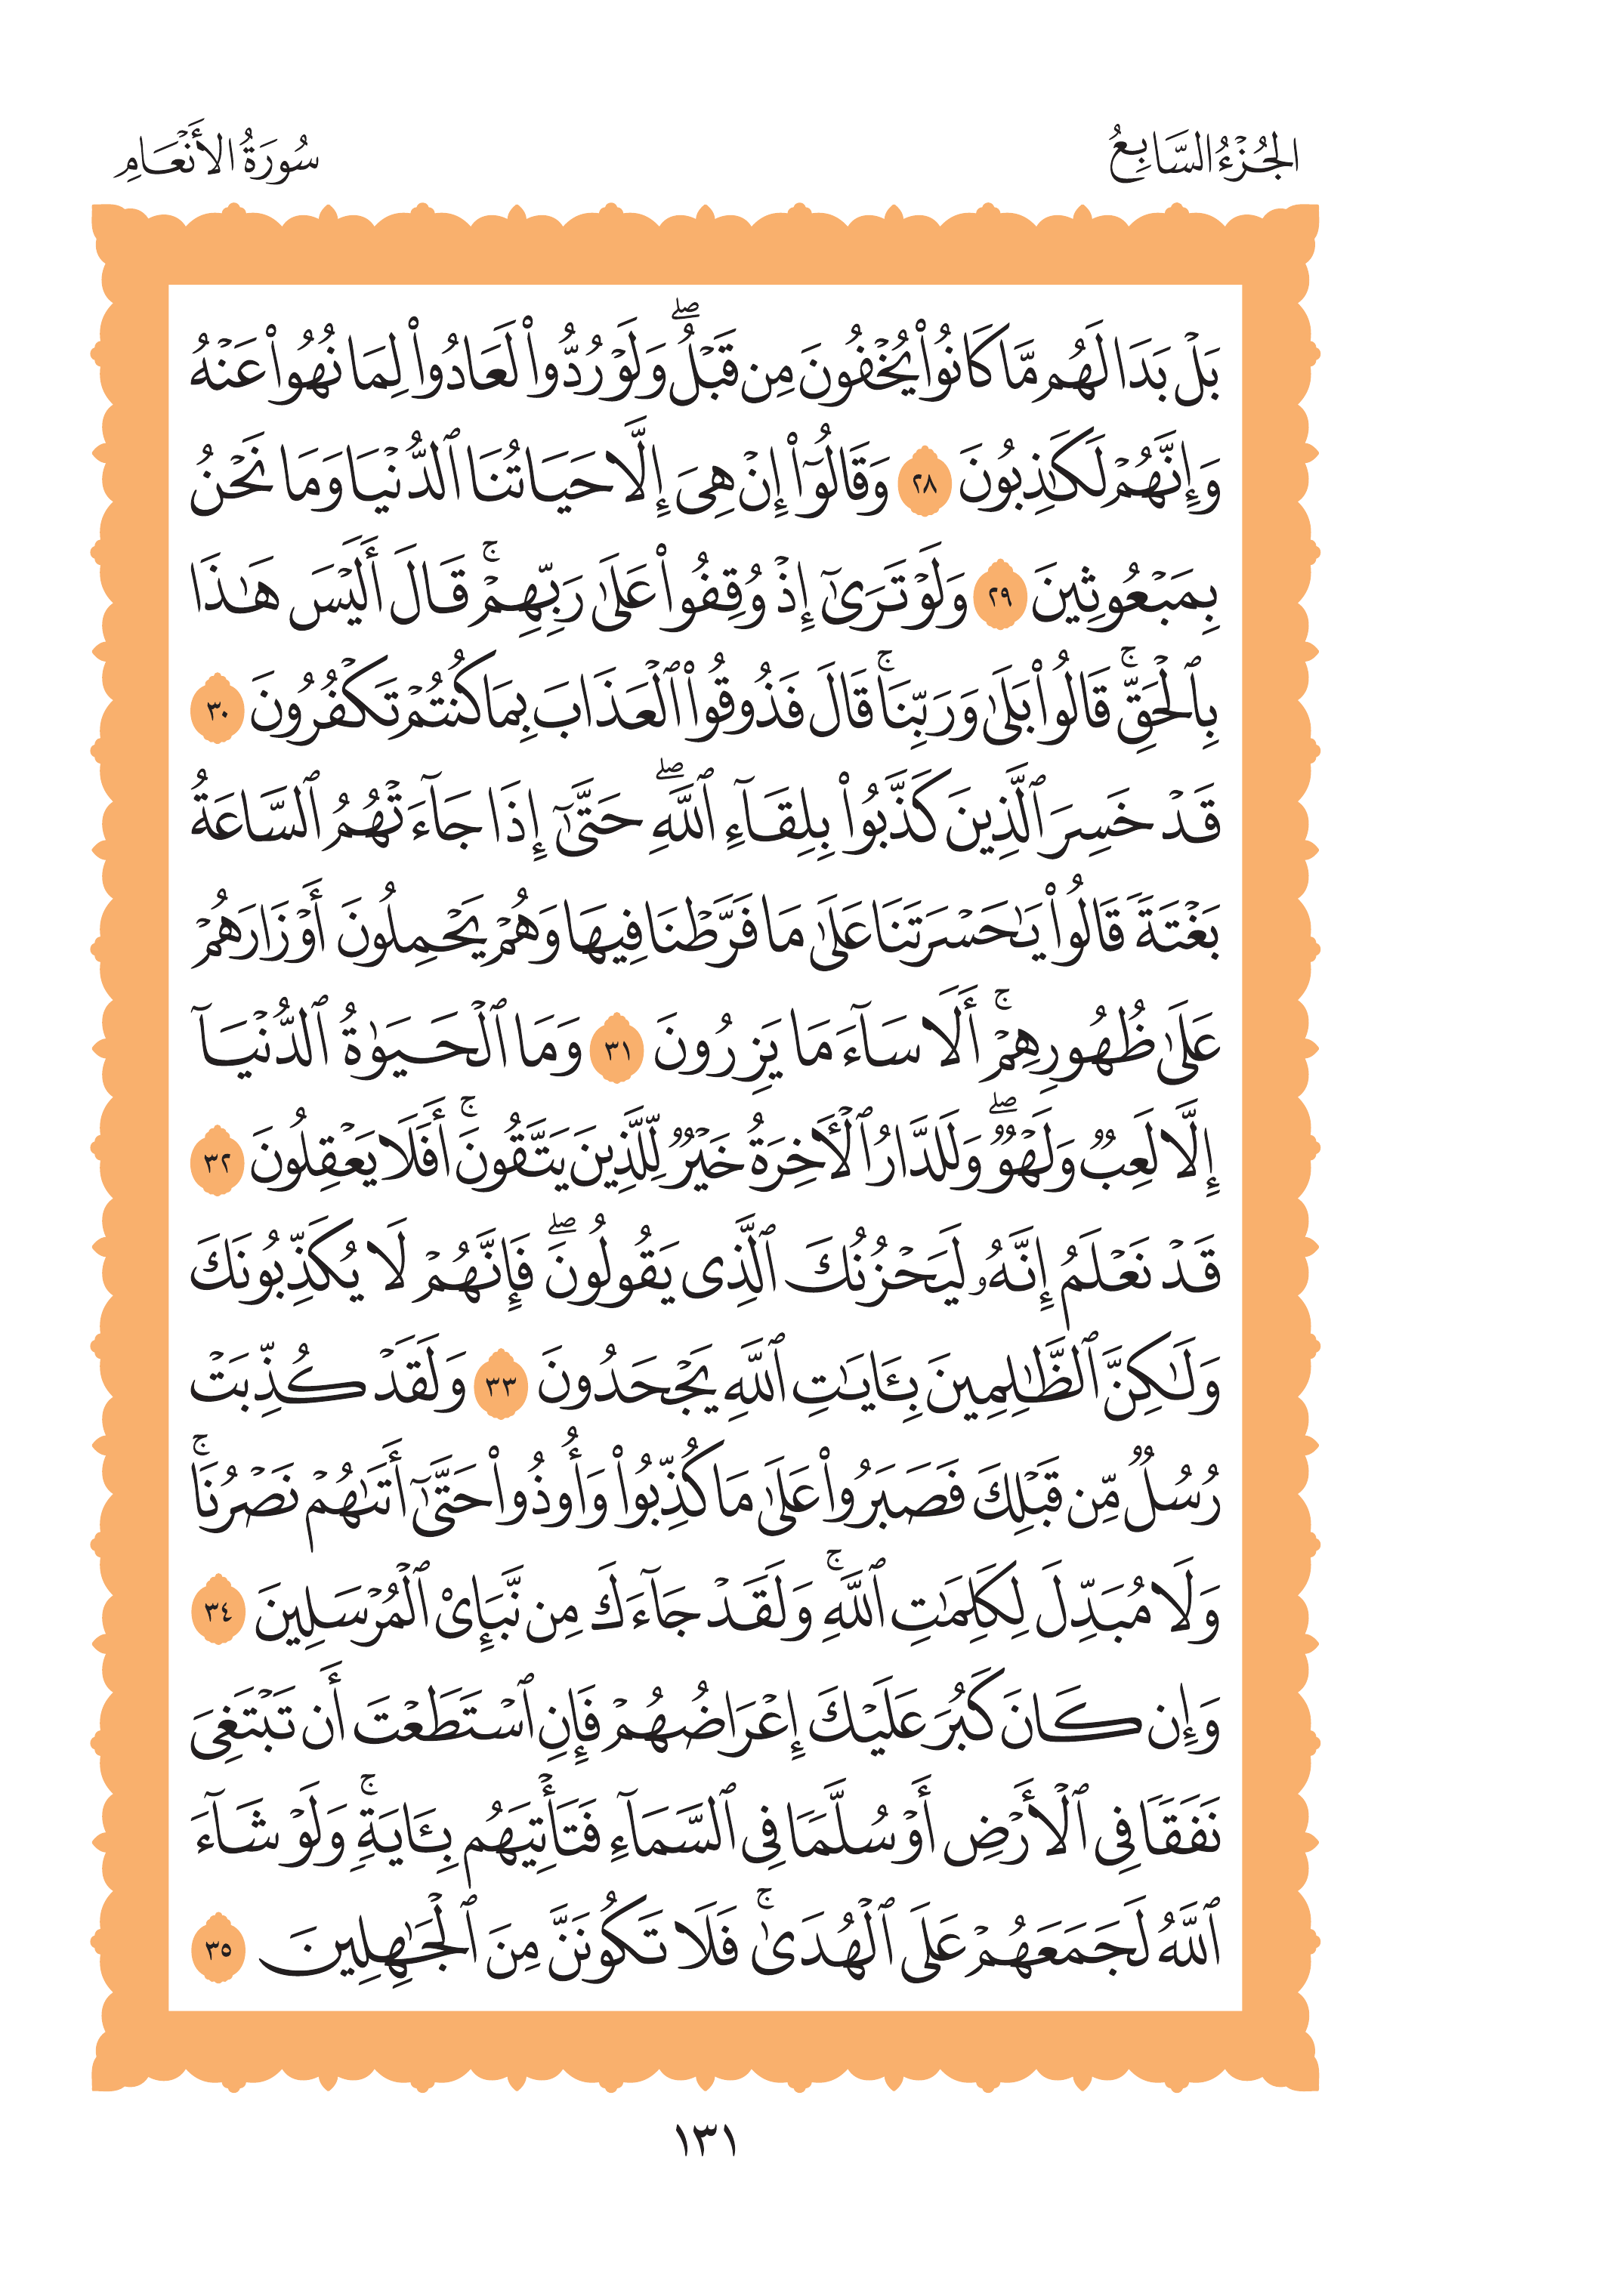 الجُزْءُ السَّابِعُ
سُورَةُ الأَنْعَامِ
بَلْ بَدَا لَهُم مَّا كَانُوا۟ يُخْفُونَ مِن قَبْلُ ۖ وَلَوْ رُدُّوا۟ لَعَادُوا۟ لِمَا نُهُوا۟ عَنْهُ
وَإِنَّهُمْ لَكَـٰذِبُونَ ٢٨ وَقَالُوٓا۟ إِنْ هِىَ إِلَّا حَيَاتُنَا ٱلدُّنْيَا وَمَا نَحْنُ
بِمَبْعُوثِينَ ٢٩ وَلَوْ تَرَىٰٓ إِذْ وُقِفُوا۟ عَلَىٰ رَبِّهِمْ ۚ قَالَ أَلَيْسَ هَـٰذَا
بِٱلْحَقِّ ۚ قَالُوا۟ بَلَىٰ وَرَبِّنَا ۚ قَالَ فَذُوقُوا۟ ٱلْعَذَابَ بِمَا كُنتُمْ تَكْفُرُونَ ٣٠
قَدْ خَسِرَ ٱلَّذِينَ كَذَّبُوا۟ بِلِقَآءِ ٱللَّهِ ۖ حَتَّىٰٓ إِذَا جَآءَتْهُمُ ٱلسَّاعَةُ
بَغْتَةً قَالُوا۟ يَـٰحَسْرَتَنَا عَلَىٰ مَا فَرَّطْنَا فِيهَا وَهُمْ يَحْمِلُونَ أَوْزَارَهُمْ
عَلَىٰ ظُهُورِهِمْ ۚ أَلَا سَآءَ مَا يَزِرُونَ ٣١ وَمَا ٱلْحَيَوٰةُ ٱلدُّنْيَآ
إِلَّا لَعِبٌ وَلَهْوٌ ۖ وَلَلدَّارُ ٱلْـَٔاخِرَةُ خَيْرٌ لِّلَّذِينَ يَتَّقُونَ ۚ أَفَلَا يَعْقِلُونَ ٣٢
قَدْ نَعْلَمُ إِنَّهُۥ لَيَحْزُنُكَ ٱلَّذِى يَقُولُونَ ۖ فَإِنَّهُمْ لَا يُكَذِّبُونَكَ
وَلَـٰكِنَّ ٱلظَّـٰلِمِينَ بِـَٔايَـٰتِ ٱللَّهِ يَجْحَدُونَ ٣٣ وَلَقَدْ كُذِّبَتْ
رُسُلٌ مِّن قَبْلِكَ فَصَبَرُوا۟ عَلَىٰ مَا كُذِّبُوا۟ وَأُوذُوا۟ حَتَّىٰٓ أَتَىٰهُمْ نَصْرُنَا ۚ
وَلَا مُبَدِّلَ لِكَلِمَـٰتِ ٱللَّهِ ۚ وَلَقَدْ جَآءَكَ مِن نَّبَإِى۟ ٱلْمُرْسَلِينَ ٣٤
وَإِن كَانَ كَبُرَ عَلَيْكَ إِعْرَاضُهُمْ فَإِنِ ٱسْتَطَعْتَ أَن تَبْتَغِىَ
نَفَقًا فِى ٱلْأَرْضِ أَوْ سُلَّمًا فِى ٱلسَّمَآءِ فَتَأْتِيَهُم بِـَٔايَةٍ ۚ وَلَوْ شَآءَ
ٱللَّهُ لَجَمَعَهُمْ عَلَى ٱلْهُدَىٰ ۚ فَلَا تَكُونَنَّ مِنَ ٱلْجَـٰهِلِينَ ٣٥
١٣١